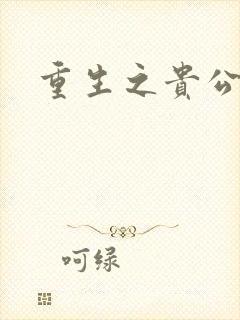 重生之貴公
呵绿